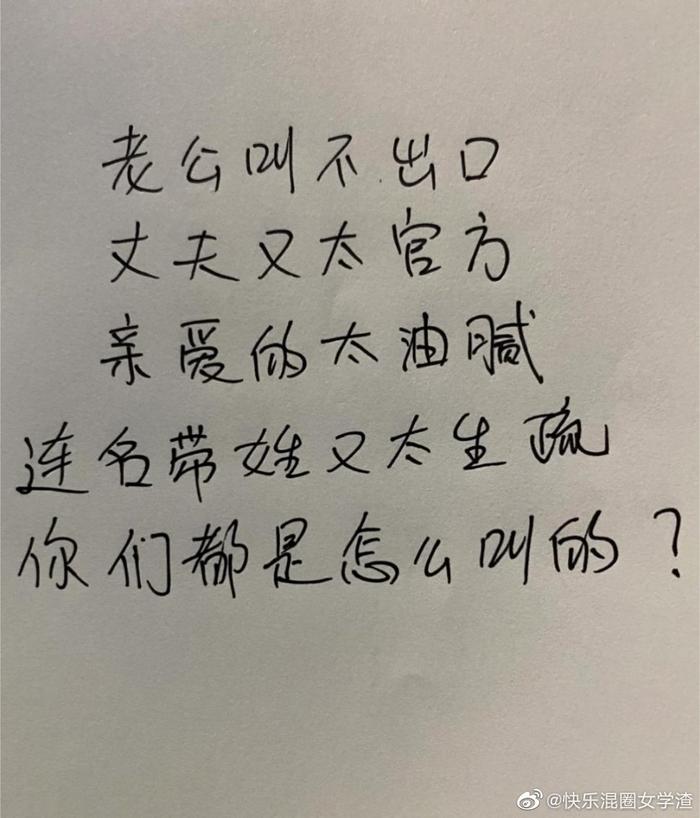 老公叫不出口
丈夫又太官方
亲爱的太油腻
连名带姓又太生疏
你们都是怎么叫的？
@快乐混圈女学渣